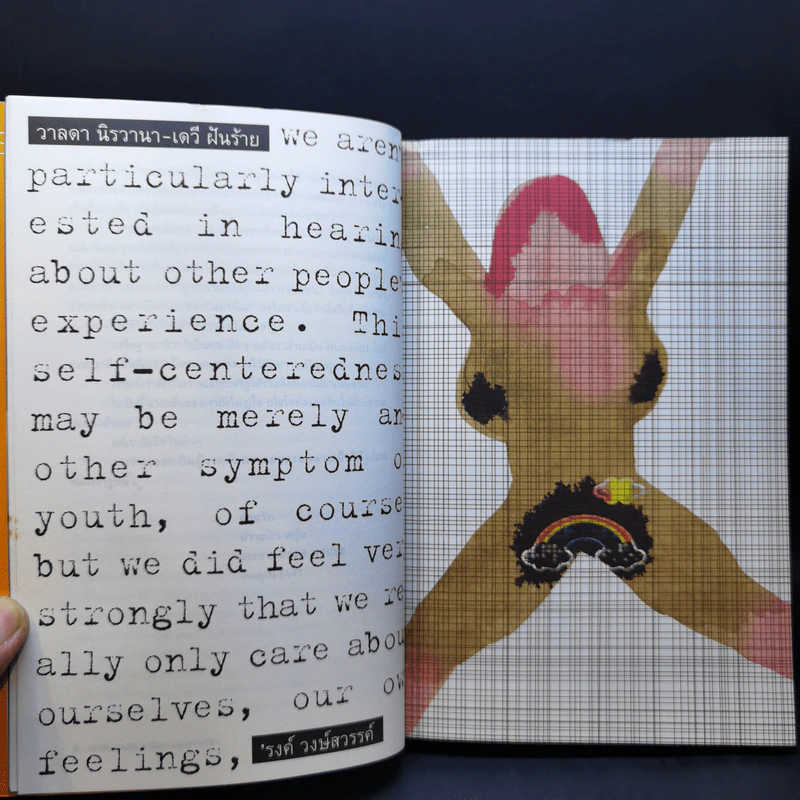 วาลดา นิรวานา-เดวี ฝันร้าย we aren
particularly inter
ested in hearin
about other people'
experience. Thi
self-centerednes
may be merely an
other symptom o
youth, of course
but we did feel ver
strongly that we re
ally only care abou
ourselves, our ow
feelings, 'รงค์ วงษ์สวรรค์